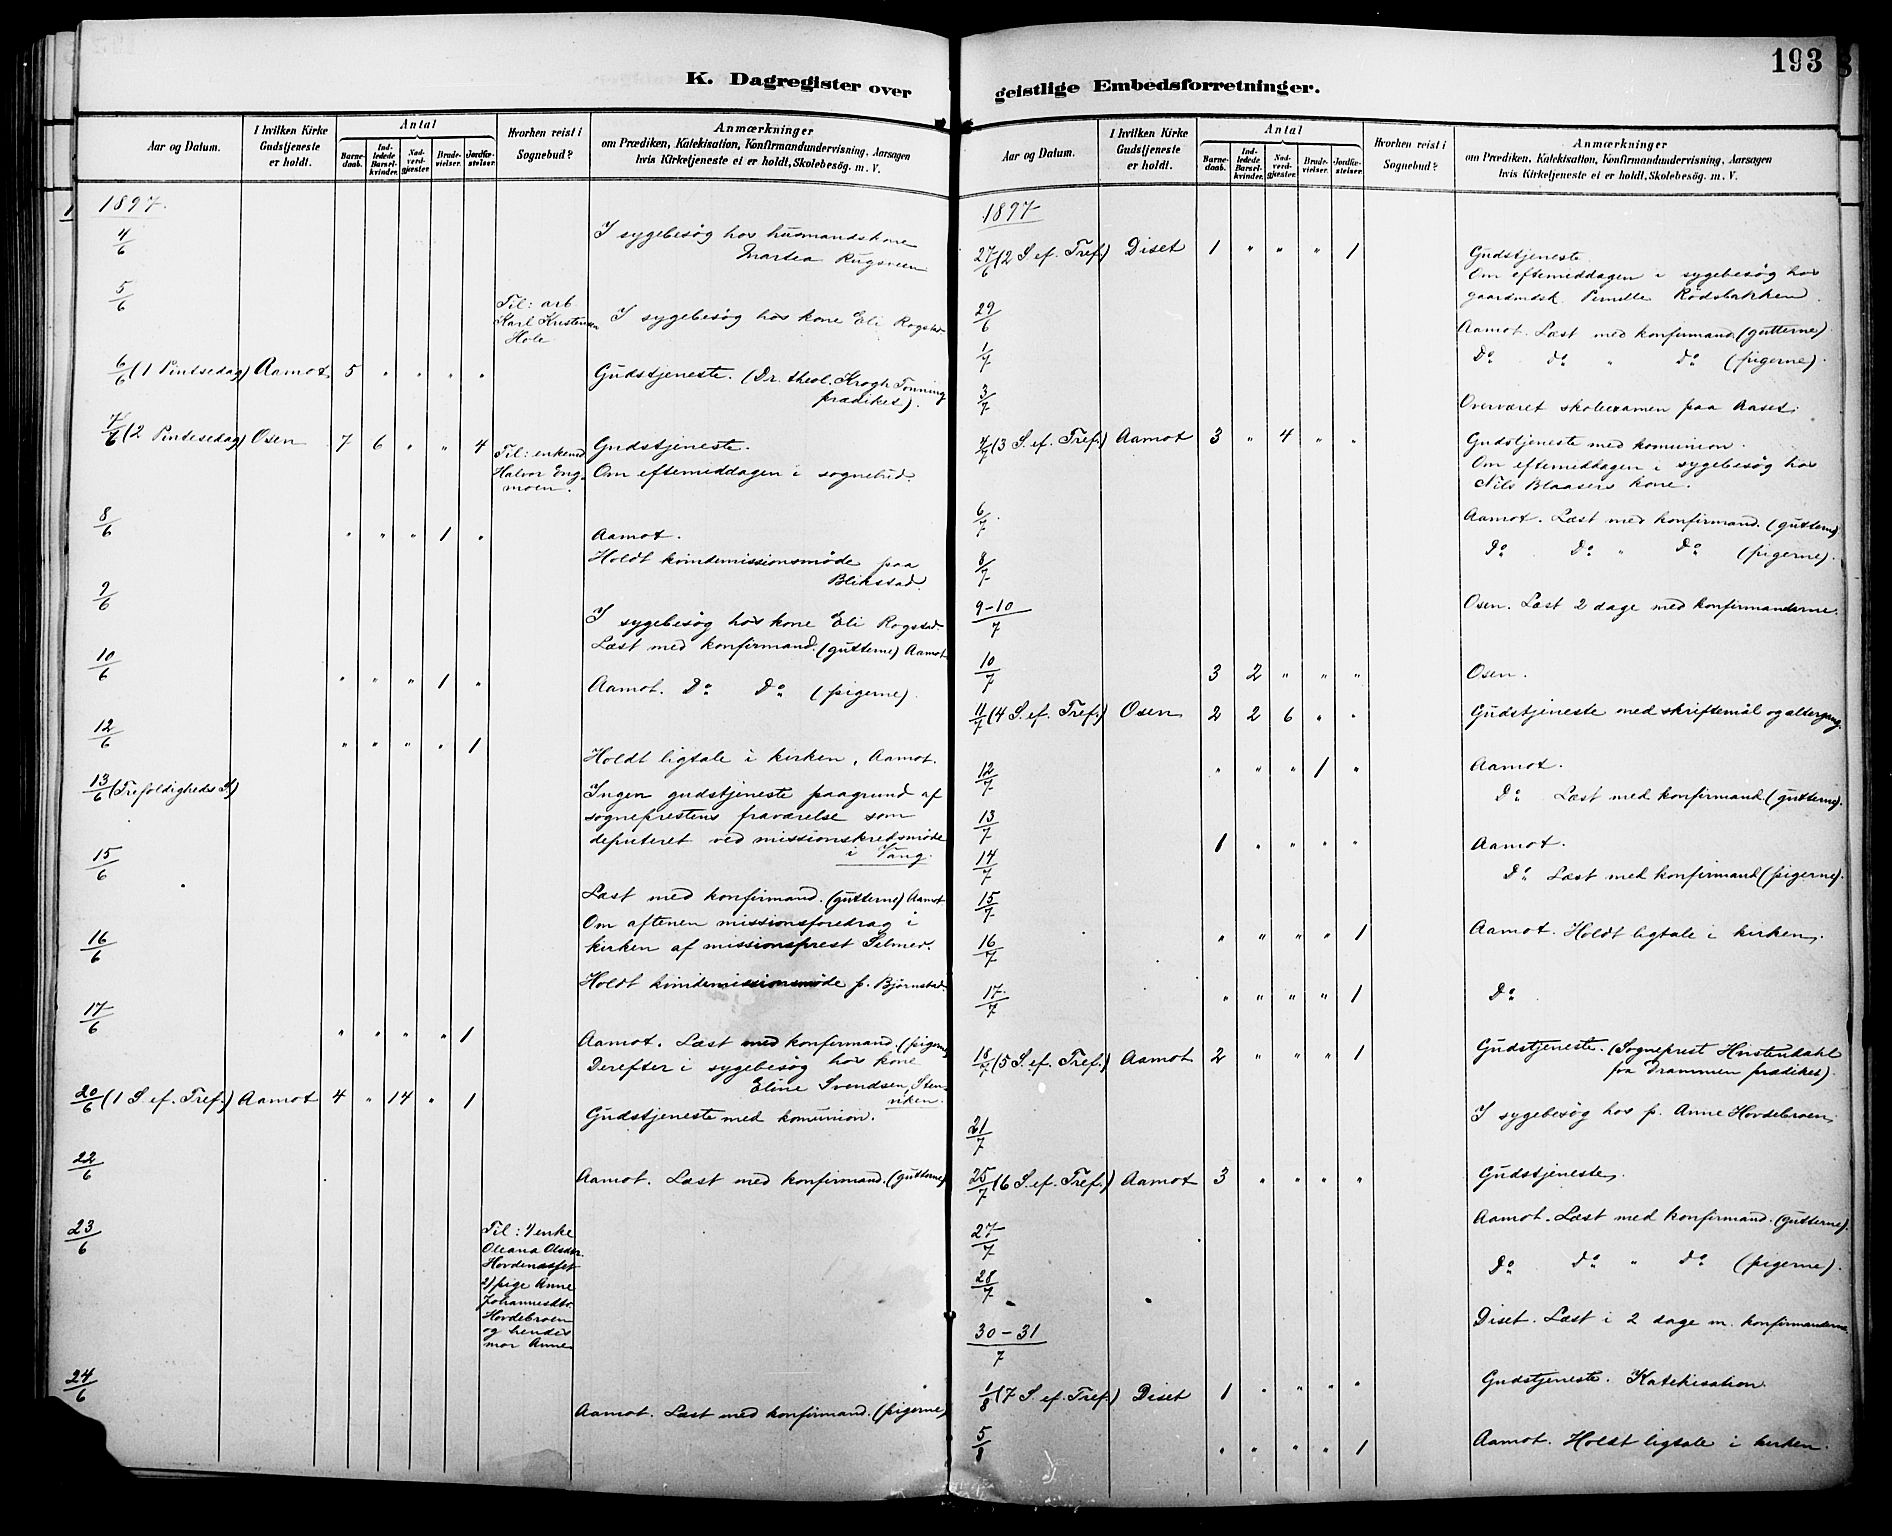 193
K. Dagregister over
geistlige Embedsforretninger.
Aar og Datum.
I hvilken Kirke Gudstjeneste er holdt.
Antal
Barne-daab.
Ind-ledede Barsel-kvinder.
Nad-verd-gjæster.
Brude-vielser.
Jordfæ-stelser.
Hvorhen reist i Sognebud?
Anmærkninger
om Prædiken, Katekisation, Konfirmandundervisning, Aarsagen
hvis Kirketjeneste ei er holdt, Skolebesøg. m. V.
1897.
4/6 I sygebesøg hos husmandskone
Martea Rugsveen
5/6 Til: arb. Karl Kristensen Hole I sygebesøg hos kone Eli Rogstad
6/6 (1 Pintsedag) Aamot. 5 " " " " Gudstjeneste. (Dr. theol. Krogh Tonning
prædiket).
7/6 (2 Pintsedag) Osen 7 6 " " 4 Til: enkemd Halvor Engmoen. Gudstjeneste.
Om eftermiddagen i sognebud.
8/6 " " " 1 " Aamot.
Holdt kvindemissionsmøde paa
Blikstad.
9/6 I sygebesøg hos kone Eli Rogstad.
Læst med konfirmand. (gutterne) Aamot
10/6 " " " 1 " Aamot. Do Do (pigerne).
12/6 " " " " 1 Holdt ligtale i kirken, Aamot.
13/6 (Trefoldigheds S.) Ingen gudstjeneste paagrund af
sogneprestens fraværelse som
deputeret ved missionskredsmøde
i Vang.
15/6 Læst med konfirmand. (gutterne) Aamot
Om aftenen missionsforedrag i
kirken af missionsprest Selmer.
16/6 Holdt kvindemissionsmøde p. Bjørnstad.
17/6 " " " " 1 Aamot. Læst med konfirmand. (pigerne)
Derefter i sygebesøg hos kone
Eline Svendsen, Stenviken.
20/6 (1 S. ef. Tref.) Aamot 4 " 14 " 1 Gudstjeneste med komunion.
22/6 Aamot. Læst med konfirmand. (gutterne)
23/6 Til: 1/ enke
Oleana Olsdtr.
Hovdenæsset
2/ pige Anne
Johannesdtr.
Hovdebroen
og hendes
mor Anne
24/6 Aamot. Læst med konfirmand. (pigerne)
Aar og Datum.
I hvilken Kirke Gudstjeneste er holdt.
Antal
Barne-daab.
Ind-ledede Barsel-kvinder.
Nad-verd-gjæster.
Brude-vielser.
Jordfæ-stelser.
Hvorhen reist i Sognebud?
Anmærkninger
om Prædiken, Katekisation, Konfirmandundervisning, Aarsagen
hvis Kirketjeneste ei er holdt, Skolebesøg. m. V.
1897
27/6 (2 S. ef. Tref.) Diset 1 " " " 1 Gudstjeneste.
Om eftemiddagen i sygebesøg hos
gaardmdsk. Pernille Rødsbakken.
29/6 Aamot. Læst med konfirmand (gutterne).
1/7 Do do " do (pigerne).
3/7 Overværet skoleexamen paa Aaset.
4/7 (3 S. ef. Tref.) Aamot 3 " 4 " " Gudstjeneste med komunion.
Om eftemiddagen i sygebesøg hos
Nils Blaasers kone.
6/7 Aamot. Læst med konfirmand. (gutterne)
8/7 Do Do " Do (pigerne).
9-10/7 Osen. Læst 2 dage med konfirmanderne.
10/7 3 2 " " " Osen.
11/7 (4 S. ef. Tref.) Osen 2 2 6 " " Gudstjeneste med skriftemål og altergang.
12/7 " " " 1 " Aamot.
13/7 Do Læst med konfirmand (gutterne).
14/7 1 " " " " Aamot.
15/7 Do Læst med konfirmand (pigerne).
16/7 " " " " 1 Aamot. Holdt ligtale i kirken.
17/7 " " " " 1 Do
18/7 (5 S. ef. Tref.) Aamot 2 " " " 1 Gudstjeneste. (Sogneprest
fra Drammen prædiket).
21/7 I sygebesøg hos p. Anne Hovdebroen.
25/7 (6 S. ef. Tref.) Aamot 3 " " " " Gudstjeneste.
27/7 Aamot. Læst med konfirmand. (gutterne).
28/7 Do Do " Do (pigerne).
30-31/7 Diset. Læst i 2 dage m. konfirmanderne
1/8 (7 S. ef. Tref.) Diset 1 " " " " Gudstjeneste. Katekisation.
5/8 " " " " 1 Aamot. Holdt ligtale i kirken.